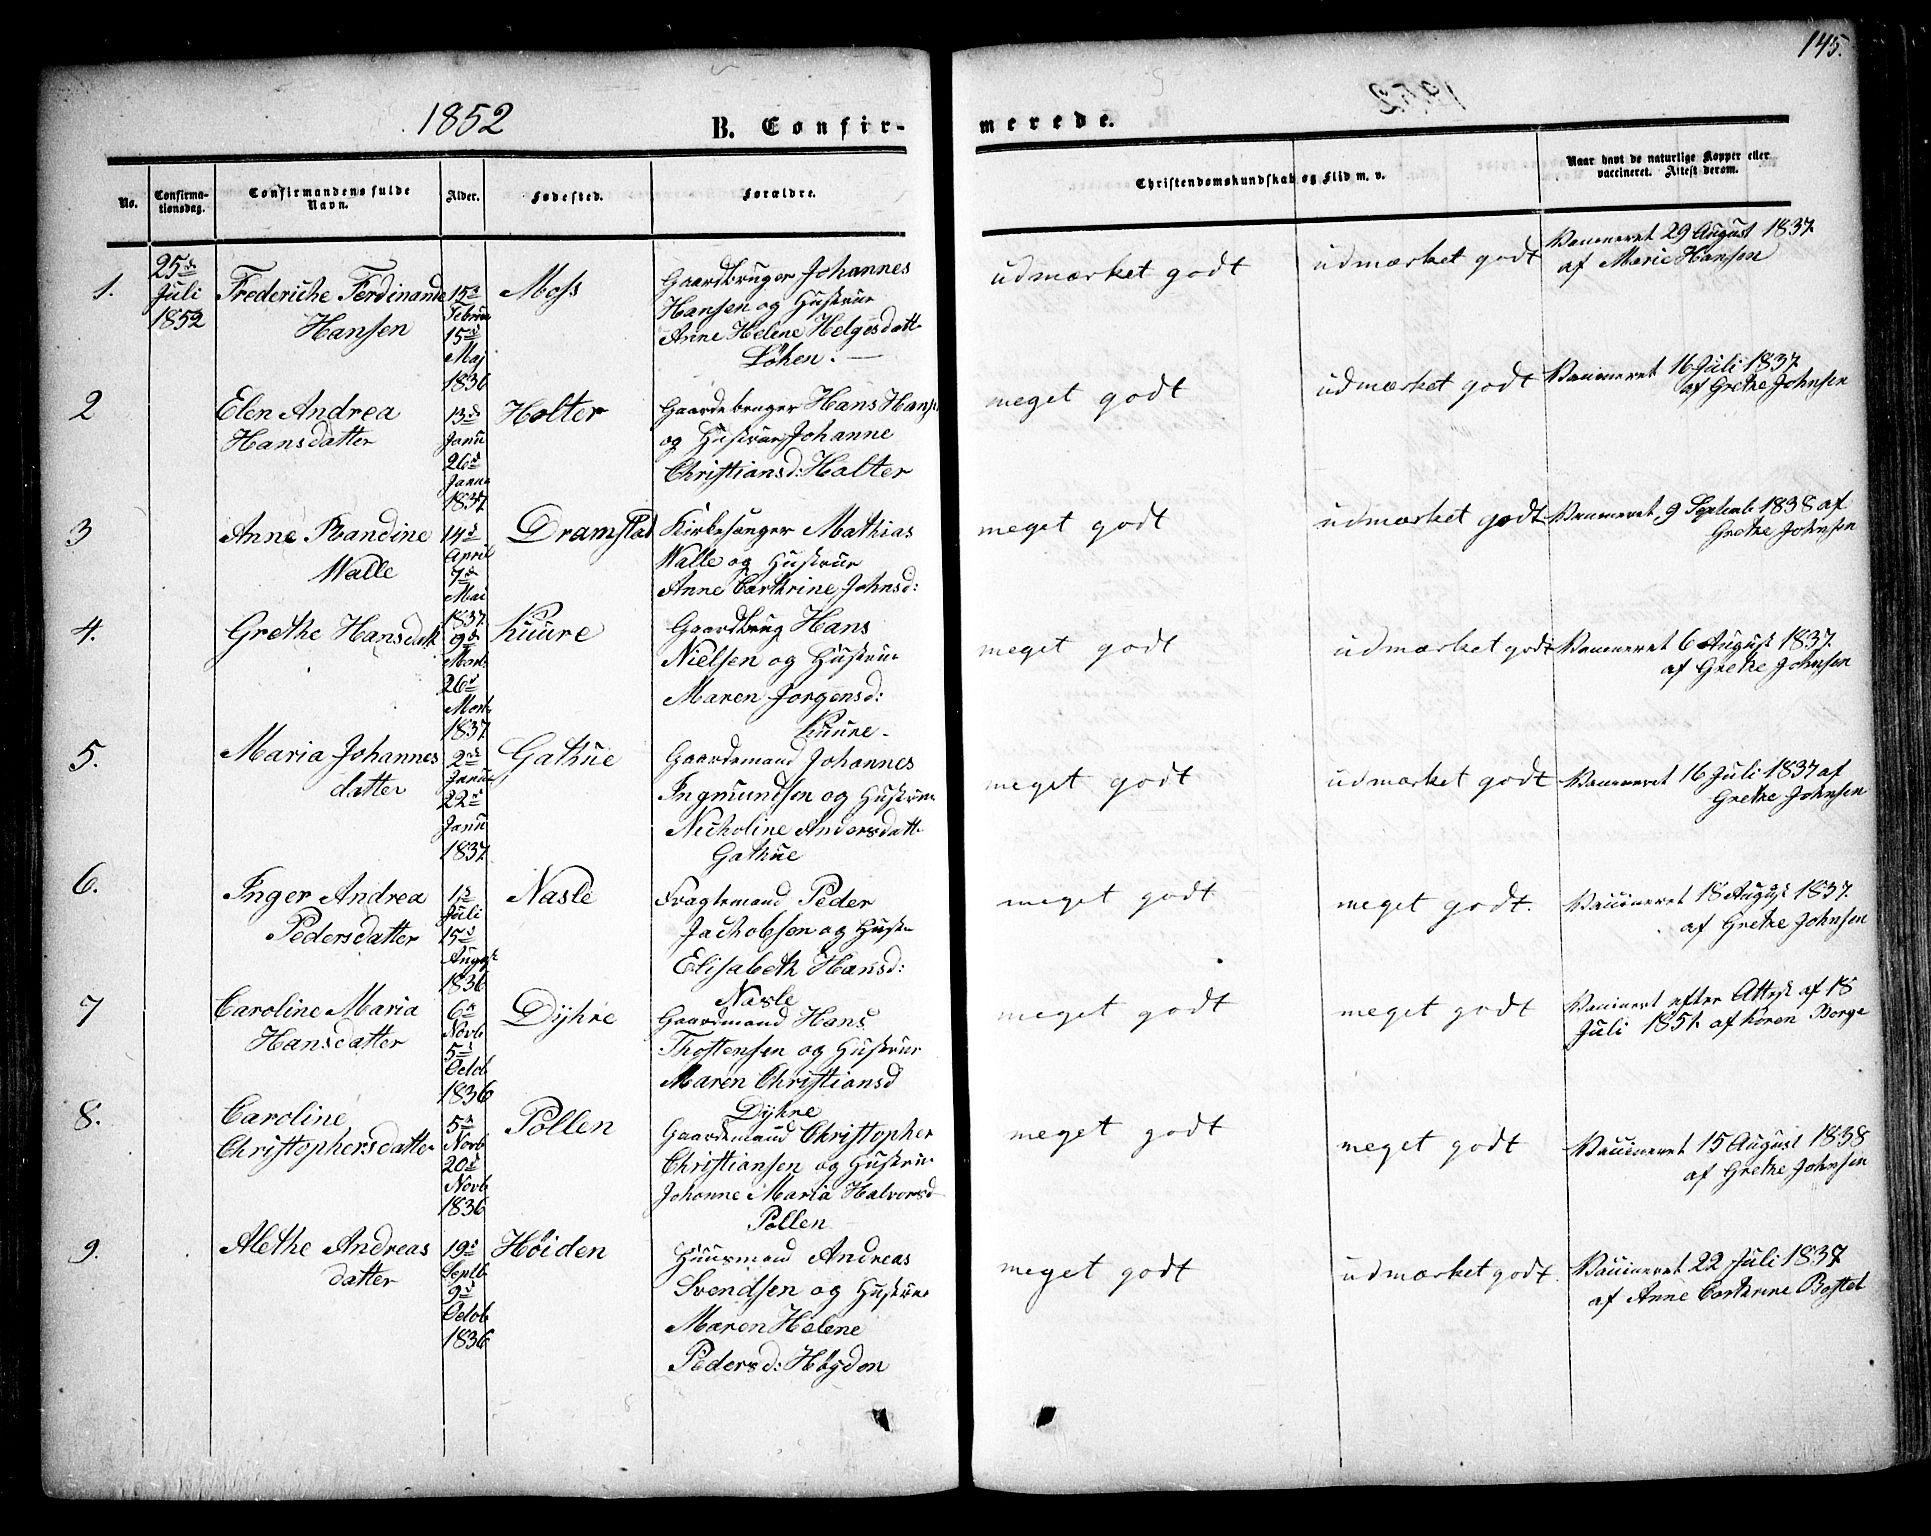 145.
1852
B. Confir-
merede.
No.
Confirma-
tionsdag.
Confirmandens fulde
Navn.
Alder.
Fødested.
Forældre.
Christendomskundskab og Flid m. v.
Naar havt de naturlige Kopper eller
vaccineret. Attest derom.
1.
25de
Juli
1852
Frederiche Ferdinande
Hansen
15de
Februar
15de
Maj
1836
Moss
Gaardbruger Johannes
Hansen og Hustrue
Anne Helene Helgesdatt
Løken.
udmærket godt
udmærket godt
Vaccineret 29 August 1837
af Marie Hansen
2
Elen Andrea
Hansdatter
13de
Janu
26de
Janua
1837
Holter
Gaardebruger Hans Hans
og Hustrue Johanne
Christiansd: Halter
meget godt
udmærket godt
Vaccineret 16 Juli 1837
af Grethe Johnsen
3
Anne Randine
Walle
14de
April
7de
Mai
1837
Dramstad
Kirkesanger Mathias
Walle og Hustrue
Anne Carthrine Johnsd:
meget godt
udmærket godt
Vaccineret 9 Septemb 1838 af
Grethe Johnsen
4.
Grethe Hansdatt
9de
Marts
26de
Marts
1837
Kuure
Gaardbrug Hans
Nielsen og Hustrue
Maren Jorgensd:
Kuure
meget godt
udmærket godt
Vaccineret 6 August 1837
af Grethe Johnsen
5.
Maria Johannes
datter
2de
Janua
22de
Janu
1837
Gathue
Gaardemand Johannes
Ingmundsen og Hustrue
Nicholine Andersdatt
Gathue
meget godt
udmærket godt
Vaccineret 16 Juli 1837 af
Grethe Johnsen
6.
Inger Andrea
Pedersdatter
1ste
Juli
15de
August
1836
Nasle
Peder
Jachobsen og Hust
Elisabeth Hansd:
Nasle
meget godt
meget godt.
Vaccineret 18 August 1837
af Grethe Johnsen
7
Caroline Maria
Hansdatter
6te
Novb
5de
Octob
1836
Dyhre
Gaardmand Hans
Thostensen og Hustrue
Maren Christiansd
Dyhre
meget godt
meget godt
Vaccineret efter Attest af 18
Juli 1851 af Koren Borge
8.
Caroline
Christophersdatter
5te
Novb
20de
Novb
1836
Pollen
Gaardemand Christopher
Christiansen og Hustrue
Johanne Maria Halvorsd
Pollen
meget godt
meget godt
Vaccineret 15 August 1838
af Grethe Johnsen
9.
Alethe Andreas
datter
19de
Septb
9de
Octob
1836
Høiden
Huusmand Andreas
Svendsen og Hustrue
Maren Helene
Pedersd: Høgden
meget godt
udmærket godt.
Vaccineret 22 Juli 1837
af Anne Cartharine